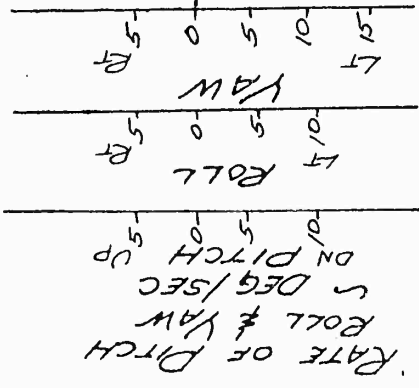 RATE OF PITCH
ROLL & YAW
~ DEG/SEC
DN PITCH UP
10 5 0 5
ROLL
LT RT
10 5 0 5
YAW
LT RT
15 10 5 0 5